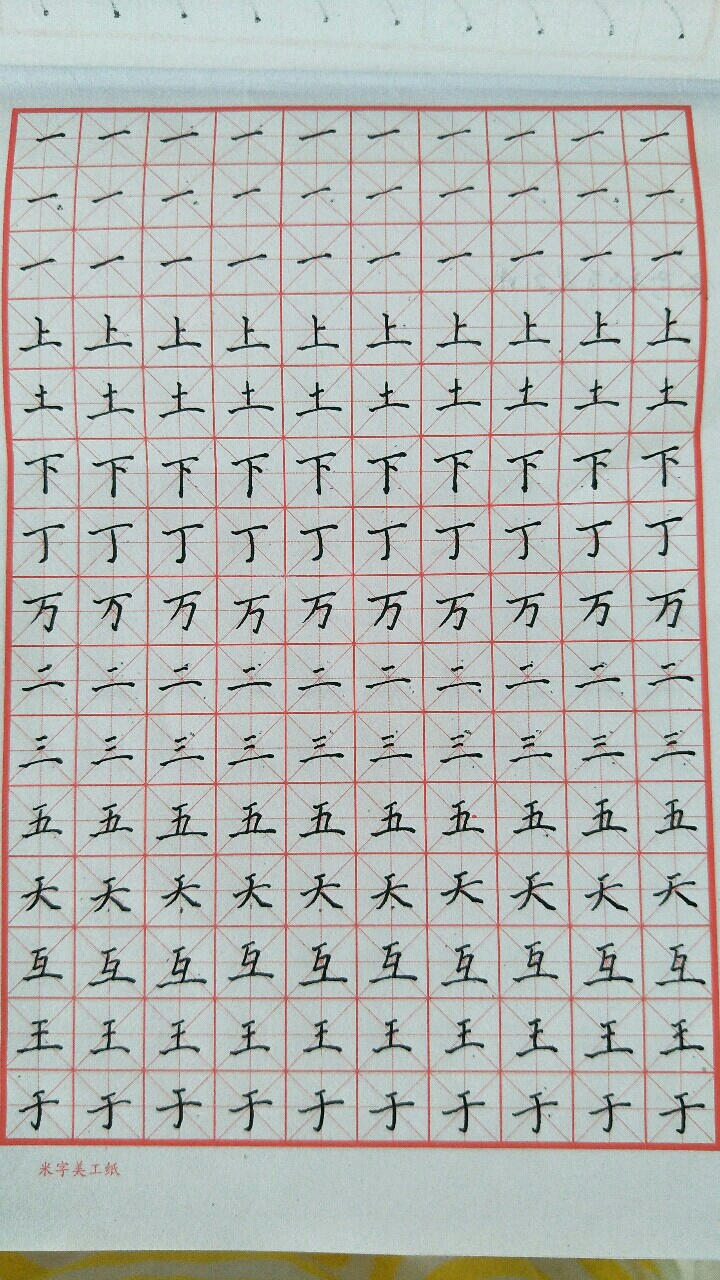 一一一一一一一一一一
一一一一一一一一一一
一一一一一一一一一一
上上上上上上上上上上
土土土土土土土土土土
下下下下下下下下下下
丁丁丁丁丁丁丁丁丁丁
万万万万万万万万万万
二二二二二二二二二二
三三三三三三三三三三
五五五五五五五五五五
天天天天天天天天天天
互互互互互互互互互互
王王王王王王王王王王
于于于于于于于于于于
米字美工纸